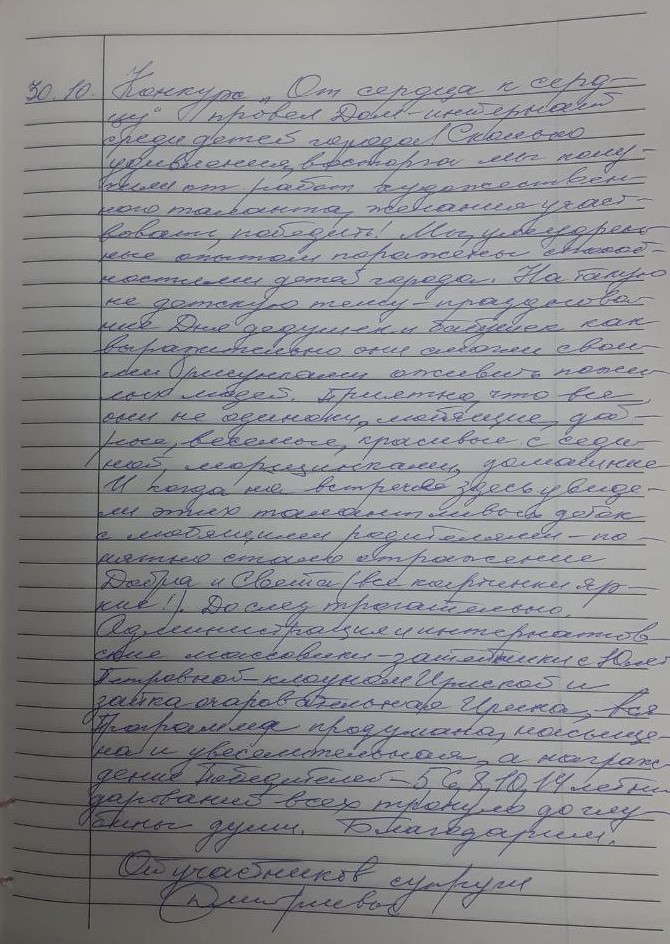 30.10. Конкурс „От сердца к серд-
цу" провел Дом-интернат
среди детей города! Сколько
удивления, восторга мы полу-
чили от работ художествен-
ного таланта, желания участ-
вовать, победить! Мы, умудрен-
ные опытом поражены способ-
ностями детей города. На такую
не детскую тему - празднова-
ние Дня дедушек и бабушек как
выразительно они смогли свои-
ми рисунками оживить пожи-
лых людей. Приятно, что все
они не одиноки, любящие, доб-
рые, веселые, красивые с седи-
ной, морщинками, домашние
И когда на встрече здесь увиде-
ли этих талантливых деток
с любящими родителями - по-
нятно стало отражение
Добра и Света (все картинки яр-
кие!). До слез трогательно.
Администрация и интернатов
ские массовики-затейники с Юлей
Петровной - клоуном Ириской и
зайка очаровательная Ирина, вся
Программа продумана, насыще-
на и увеселительная, а награж-
дение Победителей - 5 6, 8, 10, 14 летни
дарований всех тронуло до глу
бины души. Благодарим.
От участников супруги
Дмитриевы